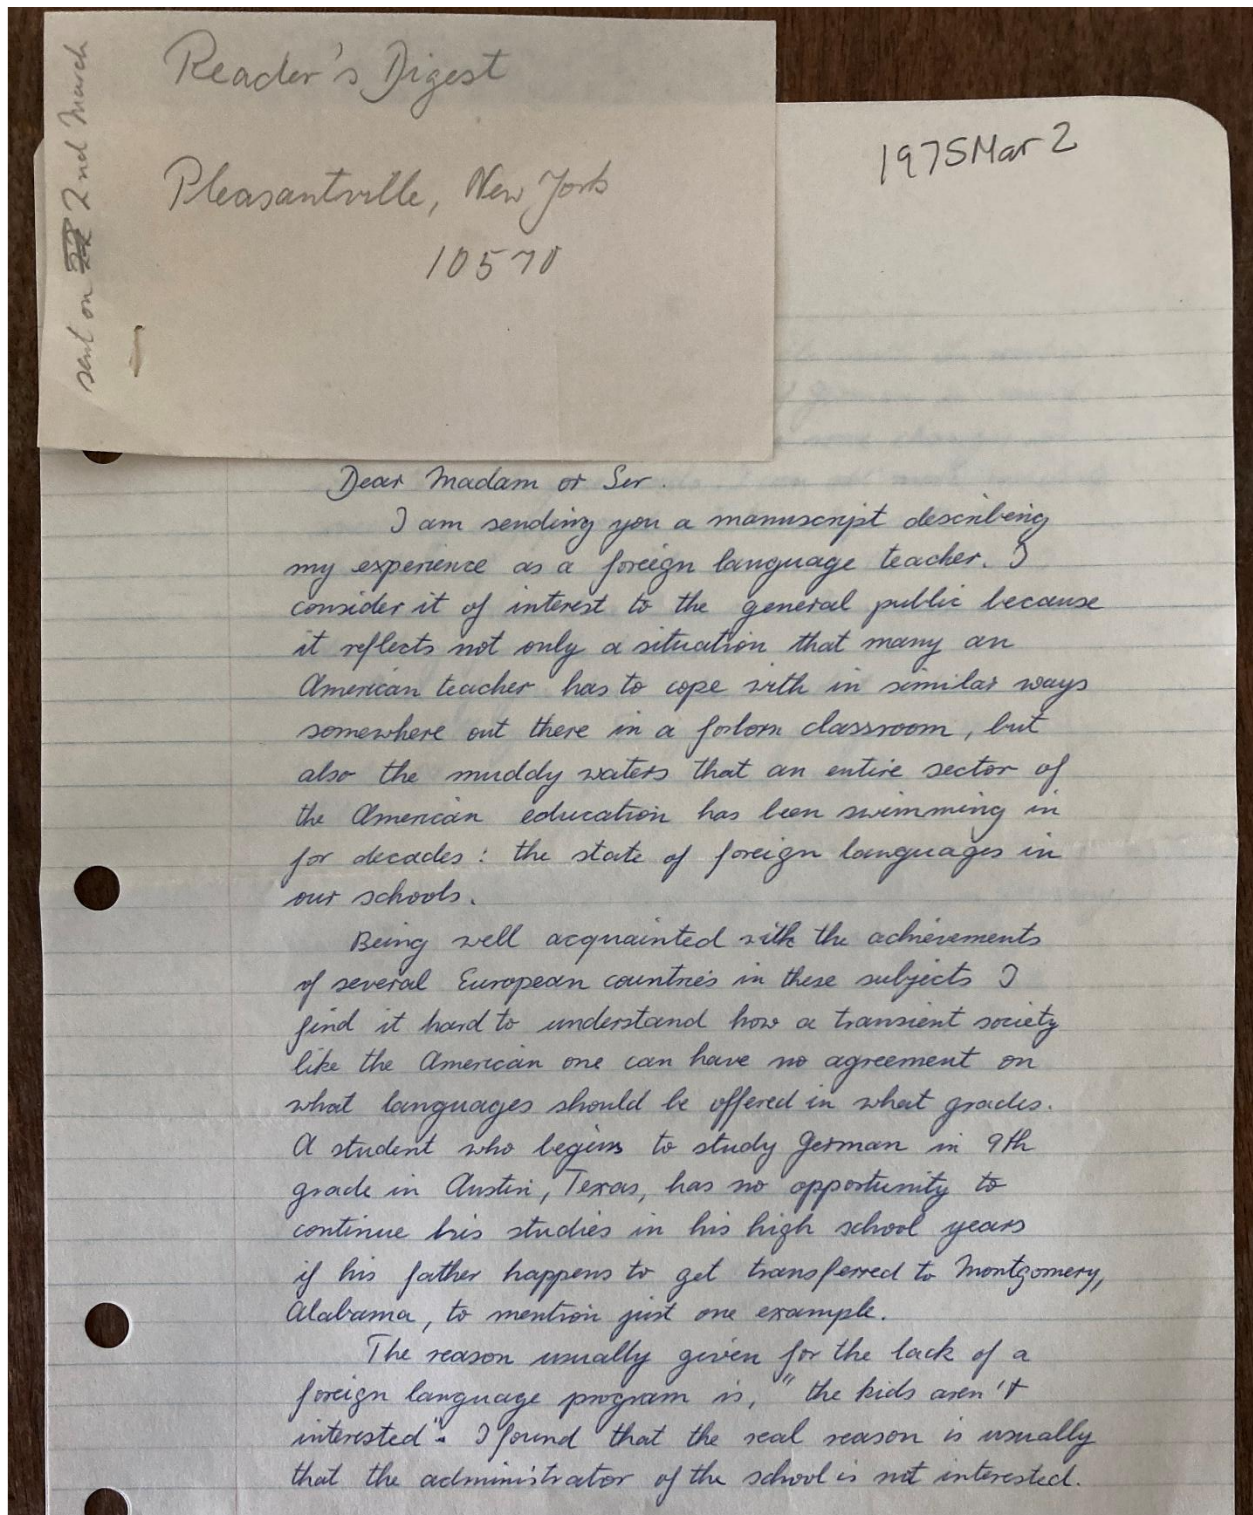 Reader's Digest
Pleasantville, New York
10570
sent on 2nd March
1975Mar 2
Dear Madam or Sir.
I am sending you a manuscript describing
my experience as a foreign language teacher. I
consider it of interest to the general public because
it reflects not only a situation that many an
American teacher has to cope with in similar ways
somewhere out there in a forlorn classroom, but
also the muddy waters that an entire sector of
the American education has been swimming in
for decades: the state of foreign languages in
our schools.
Being well acquainted with the achievements
of several European countries in these subjects I
find it hard to understand how a transient society
like the American one can have no agreement on
what languages should be offered in what grades.
A student who begins to study German in 9th
grade in Austin, Texas, has no opportunity to
continue his studies in his high school years
if his father happens to get transferred to Montgomery,
Alabama, to mention just one example.
The reason usually given for the lack of a
foreign language program is, "the kids aren't
interested". I found that the real reason is usually
that the administrator of the school is not interested.